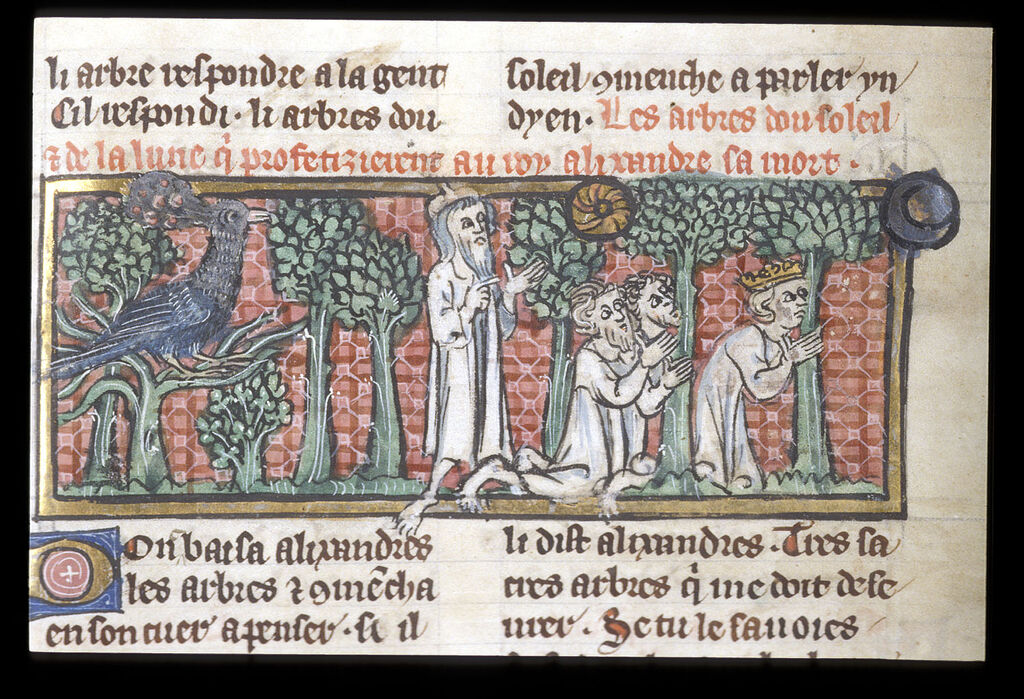 li arbre respondre a la gent
Cil respondi · li arbres dou
soleil ꝯmenche a parler yn
dyen · Les arbres dou soleil
⁊ de la lune q̃ profetizierent au roy alixandre sa mort ·
Don baisa alixandres
les arbres ⁊ ꝯmēcha
en son cuer a penser · se il
li dist alixandres · Tres sa
cres arbres q̃ me doit dese
urer · Se tu le sauoies